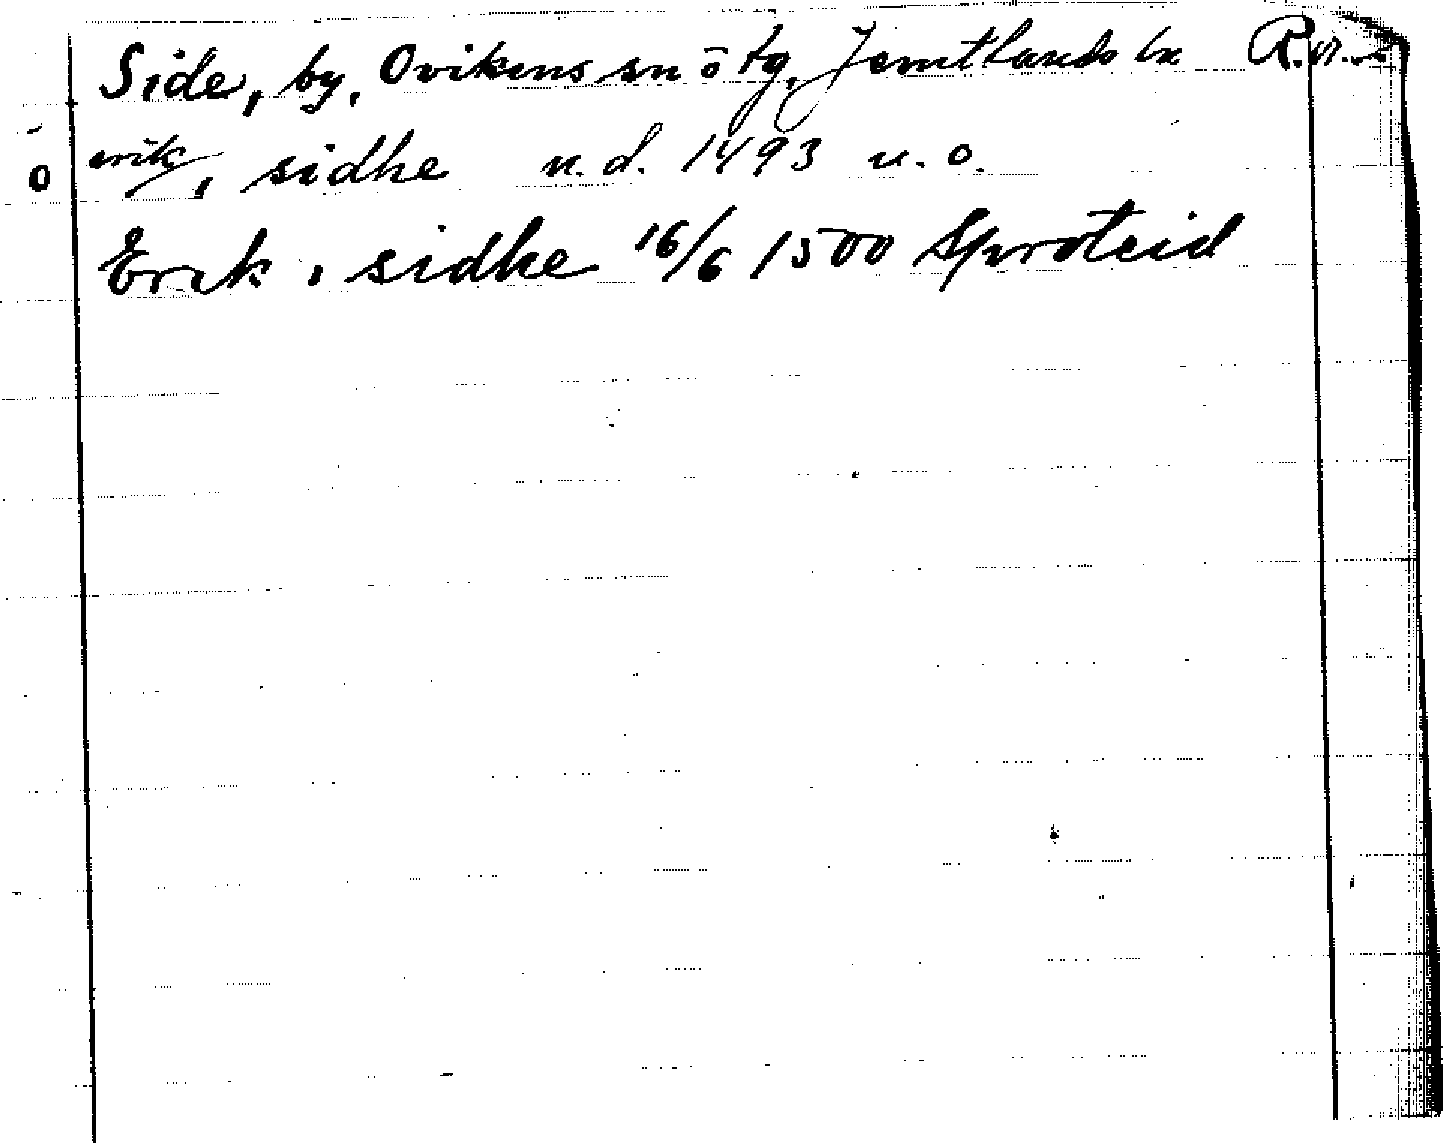 Side, by, Ovikens sn o tg, Jemtlands ln
erik, i sidhe n.d. 1493 u.o.
o
Erik i sidhe 16/6 1500 Sproteid